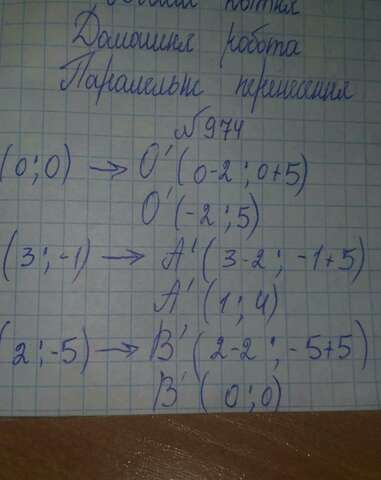 Домашня робота
Паралельне перенесення
№974
(0;0) → O'(0-2;0+5)
O'(-2;5)
(3;-1) → A'(3-2;-1+5)
A'(1;4)
(2;-5) → B'(2-2;-5+5)
B'(0;0)